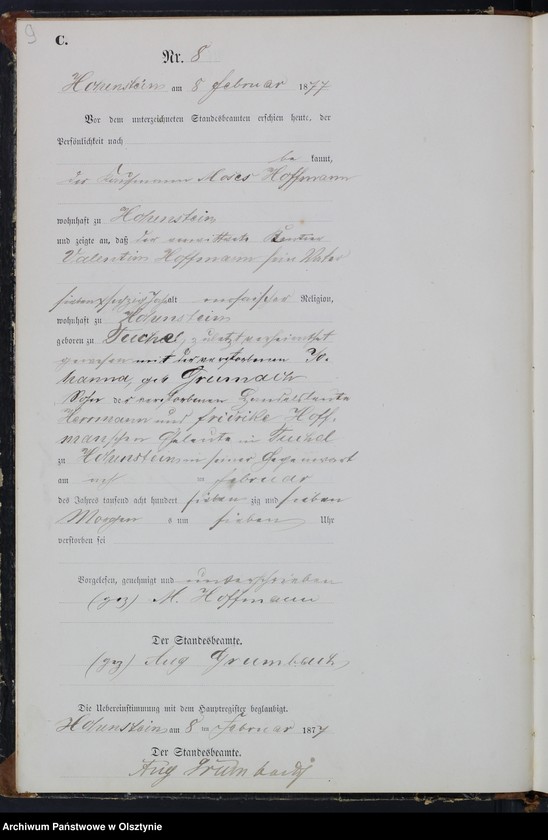 9
C.
Nr. 8
Hohenstein am 8 Februar 1877
Vor dem unterzeichneten Standesbeamten erschien heute, der
Persönlichkeit nach
be kannt,
der Kaufmann Moses Hoffmann
wohnhaft zu Hohenstein
und zeigte an, daß der verwittwete Rentier
Valentin Hoffmann sein Vater
sieben Jahr alt mosaischer Religion,
wohnhaft zu Hohenstein
geboren zu Tuchel, zuletzt verheirathet
gewesen mit der verstorbenen Jo-
hanna, geb Grumach
Sohn der verstorbenen Handelsleute
Herrmann und Friedrike Hoff-
manschen Eheleute in Tuchel
zu Hohenstein in seiner Gegenwart
am acht = Februar
des Jahres tausend acht hundert sieben zig und sieben
Morgen s um sieben Uhr
verstorben sei
Vorgelesen, genehmigt und unterschrieben
(gez) M. Hoffmann
Der Standesbeamte.
(gez) Aug Grumbach
Die Uebereinstimmung mit dem Hauptregister beglaubigt.
Hohenstein am 8 ten Februar 1877
Der Standesbeamte.
Aug Grumbach
Archiwum Państwowe w Olsztynie